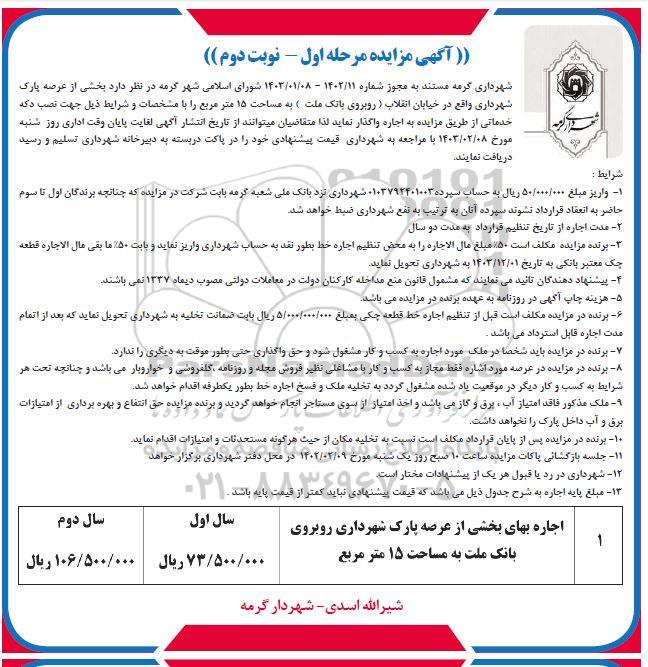 (( آگهی مزایده مرحله اول – نوبت دوم ))
شهرداری گرمه
شهرداری گرمه مستند به مجوز شماره ۱۴۰۲/۱۱ – ۱۴۰۳/۰۱/۰۸ شورای اسلامی شهر گرمه در نظر دارد بخشی از عرصه پارک
شهرداری واقع در خیابان انقلاب ( روبروی بانک ملت ) به مساحت ۱۵ متر مربع را با مشخصات و شرایط ذیل جهت نصب دکه
خدماتی از طریق مزایده به اجاره واگذار نماید لذا متقاضیان میتوانند از تاریخ انتشار آگهی لغایت پایان وقت اداری روز شنبه
مورخ ۱۴۰۳/۰۲/۰۸ با مراجعه به شهرداری قیمت پیشنهادی خود را در پاکت دربسته به دبیرخانه شهرداری تسلیم و رسید
دریافت نمایند.
شرایط :
۱- واریز مبلغ ۵۰/۰۰۰/۰۰۰ ریال به حساب سپرده۰۱۰۳۷۹۲۴۰۱۰۰۳ شهرداری نزد بانک ملی شعبه گرمه بابت شرکت در مزایده که چنانچه برندگان اول تا سوم
حاضر به انعقاد قرارداد نشوند سپرده آنان به ترتیب به نفع شهرداری ضبط خواهد شد.
۲-مدت اجاره از تاریخ تنظیم قرارداد به مدت دو سال
۳- برنده مزایده مکلف است ۵۰٪مبلغ مال الاجاره را به محض تنظیم اجاره خط بطور نقد به حساب شهرداری واریز نماید و بابت ۵۰٪ ما بقی مال الاجاره قطعه
چک معتبر بانکی به تاریخ ۱۴۰۳/۱۲/۰۱ به شهرداری تحویل نماید.
۴- پیشنهاد دهندگان تائید می نمایند که مشمول قانون منع مداخله کارکنان دولت در معاملات دولتی مصوب دیماه ۱۳۳۷ نمی باشند.
۵- هزینه چاپ آگهی در روزنامه به عهده برنده در مزایده می باشد.
۶- برنده در مزایده مکلف است قبل از تنظیم اجاره خط قطعه چکی بمبلغ ۵/۰۰۰/۰۰۰/۰۰۰ ریال بابت ضمانت تخلیه به شهرداری تحویل نماید که بعد از اتمام
مدت اجاره قابل استرداد می باشد .
۷- برنده در مزایده باید شخصا در ملک مورد اجاره به کسب و کار مشغول شود و حق واگذاری حتی بطور موقت به دیگری را ندارد.
۸- برنده در مزایده در عرصه مورد اشاره فقط مجاز به کسب و کار با مشاغلی نظیر فروش مجله و روزنامه ،گلفروشی و خواروبار می باشد و چنانچه تحت هر
شرایط به کسب و کار دیگر در موقعیت یاد شده مشغول گردد به تخلیه ملک و فسخ اجاره خط بطور یکطرفه اقدام خواهد شد.
۹- ملک مذکور فاقد امتیاز آب ، برق و گاز می باشد و اخذ امتیاز از سوی مستاجر انجام خواهد گردید و برنده مزایده حق انتفاع و بهره برداری از امتیازات
برق و آب داخل پارک را نخواهد داشت.
۱۰- برنده در مزایده پس از پایان قرارداد مکلف است نسبت به تخلیه مکان از حیث هرگونه مستحدثات و امتیازات اقدام نماید.
۱۱- جلسه بازگشائی پاکات مزایده ساعت ۱۰ صبح روز یک شنبه مورخ ۱۴۰۲/۰۲/۰۹ در محل دفتر شهرداری برگزار خواهد
۱۲- شهرداری در رد یا قبول هر یک از پیشنهادات مختار است.
۱۳- مبلغ پایه اجاره به شرح جدول ذیل می باشد که قیمت پیشنهادی نباید کمتر از قیمت پایه باشد .
۱ اجاره بهای بخشی از عرصه پارک شهرداری روبروی سال اول سال دوم
بانک ملت به مساحت ۱۵ متر مربع ۷۳/۵۰۰/۰۰۰ ریال ۱۰۶/۵۰۰/۰۰۰ ریال
شیرالله اسدی- شهردار گرمه
۰۲۱-۸۸۳۴۹۶۷۰-۵